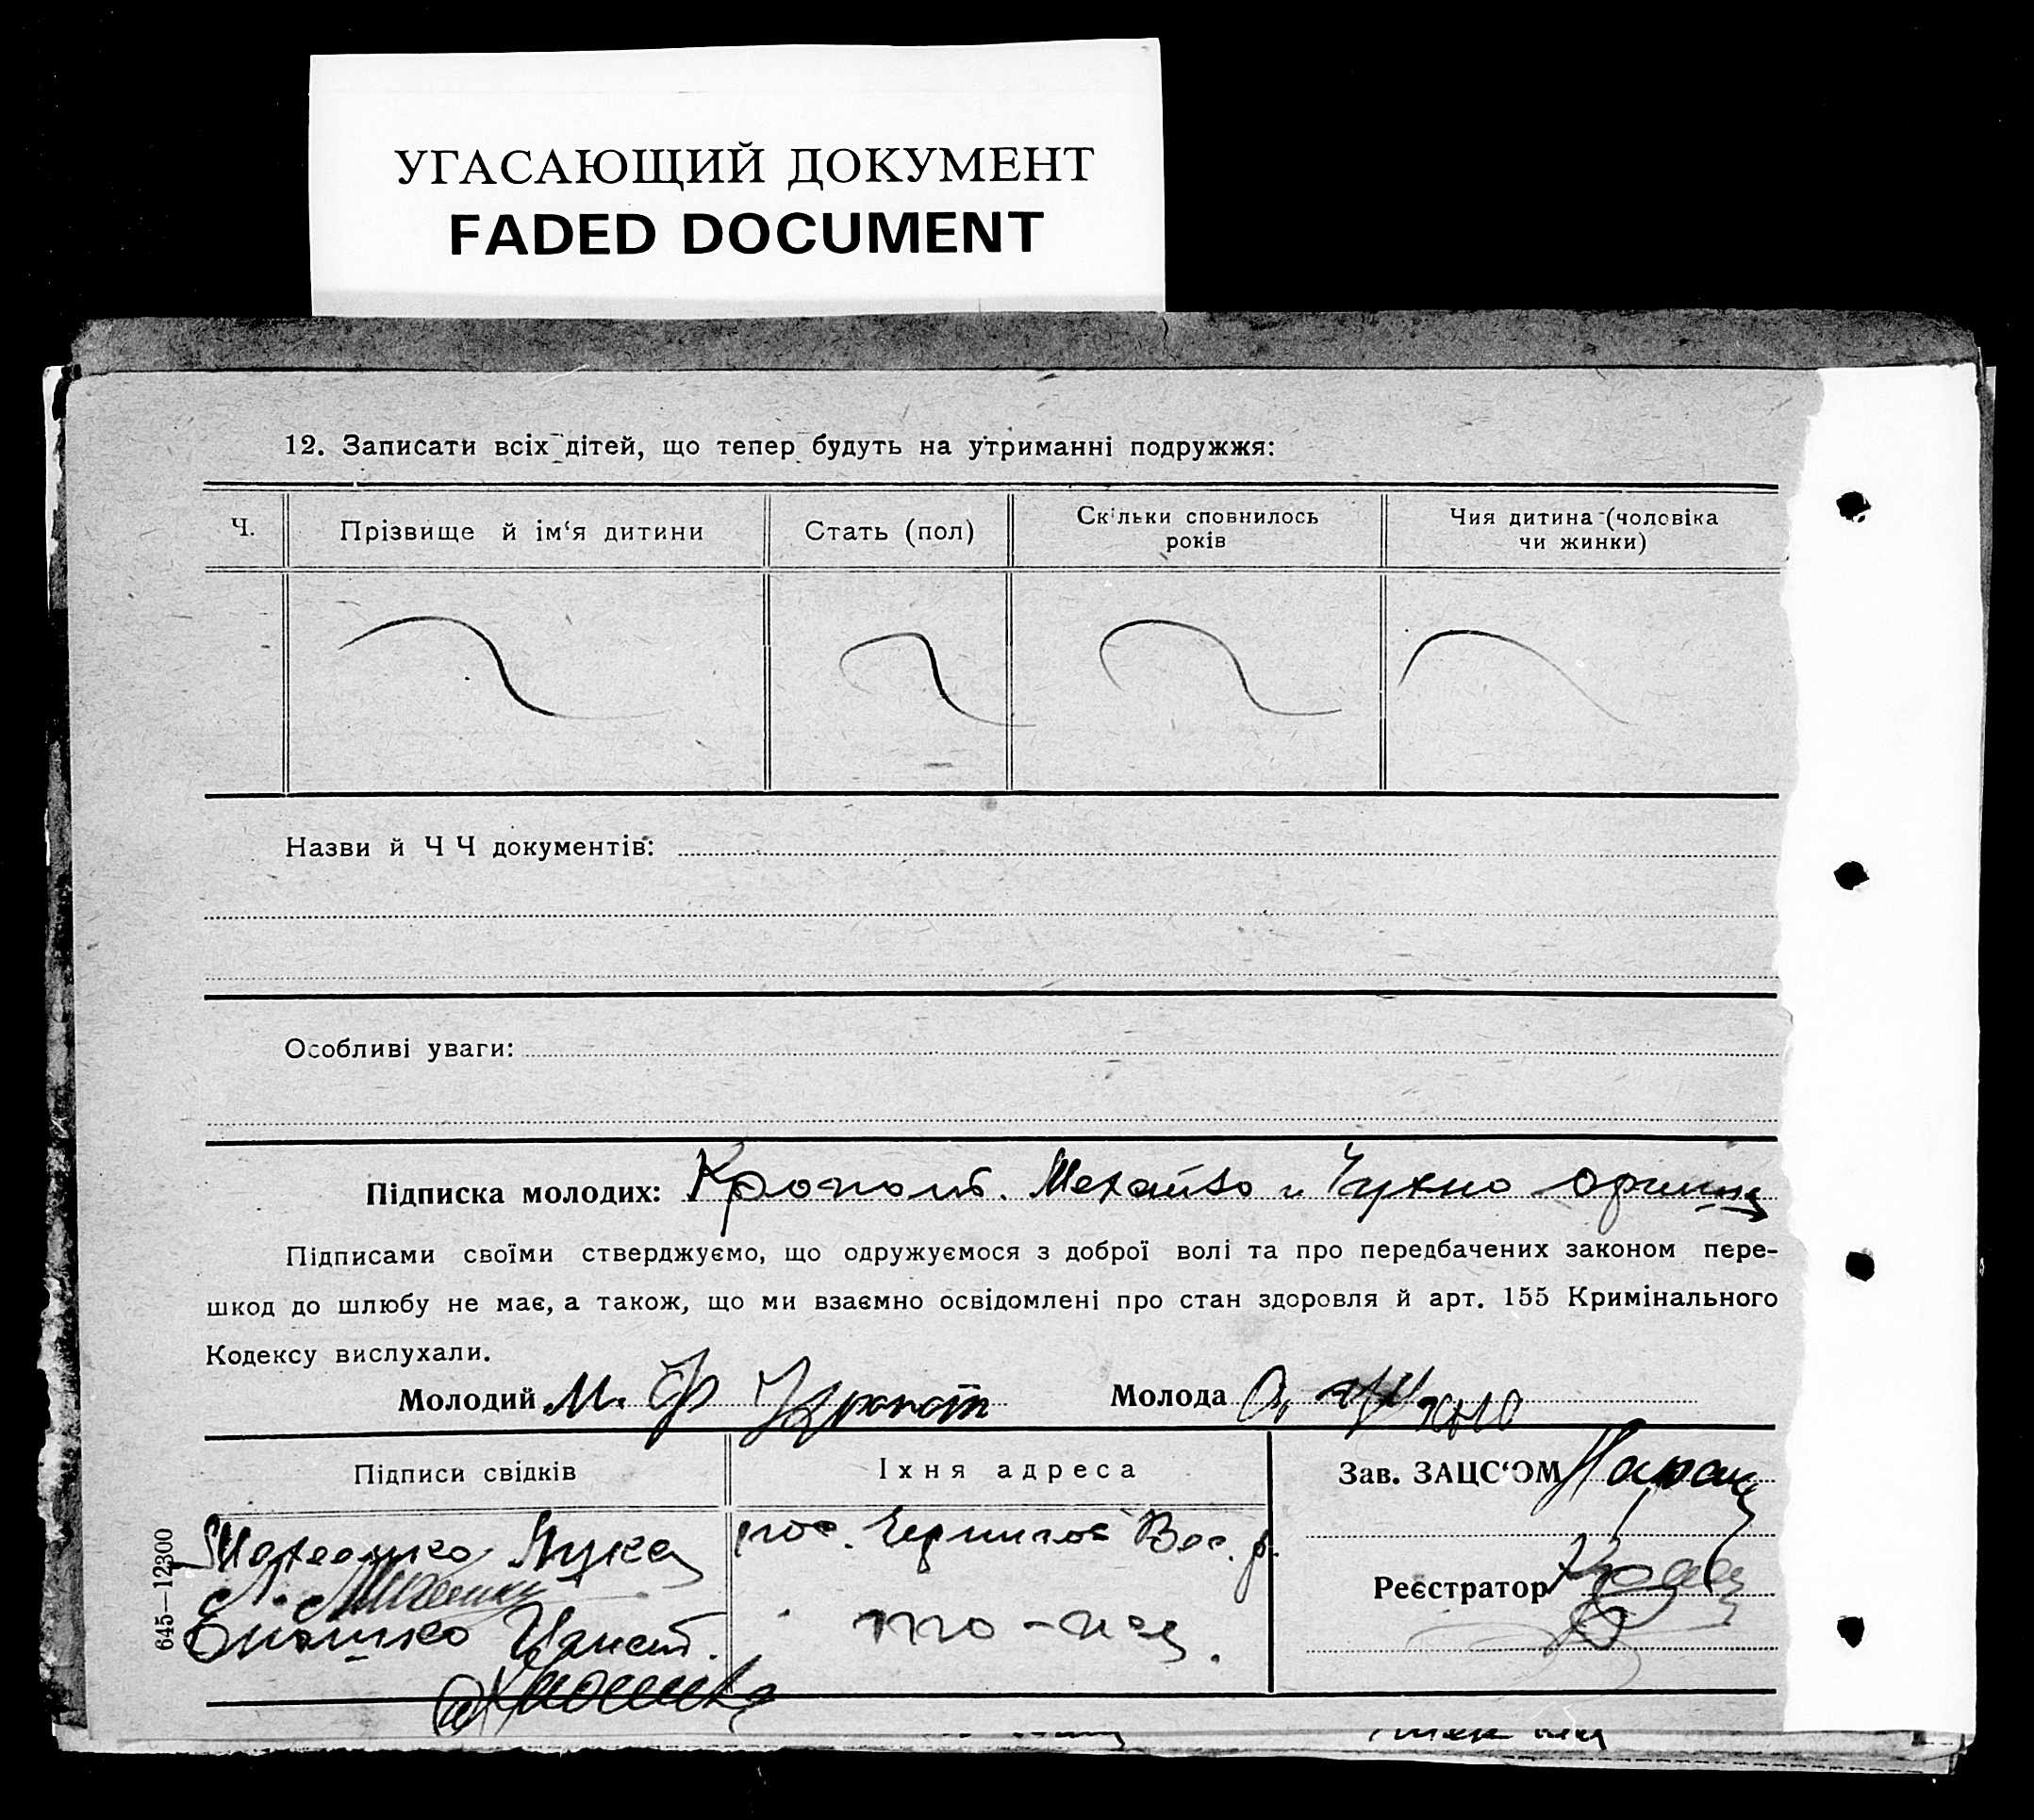 УГАСАЮЩИЙ ДОКУМЕНТ
FADED DOCUMENT
12. Записати всіх дітей, що тепер будуть на утриманні подружжя:
Ч.
Прізвище й ім‘я дитини
Стать (пол)
Скільки сповнилось
років
Чия дитина (чоловіка
чи жинки)
Назви й Ч Ч документів:
Особливі уваги:
Підписка молодих: Кропот. и Чухно
Підписами своїми стверджуємо, що одружуємося з доброї волі та про передбачених законом пере-
шкод до шлюбу не має, а також, що ми взаємно освідомлені про стан здоровля й арт. 155 Кримінального
Кодексу вислухали.
Молодий М. Ф Кропот
Молода О. Чухно
Підписи свідків
Їхня адреса
Зав. ЗАЦС‘ОМ
Лука
Реєстратор
то-же.
645—12300